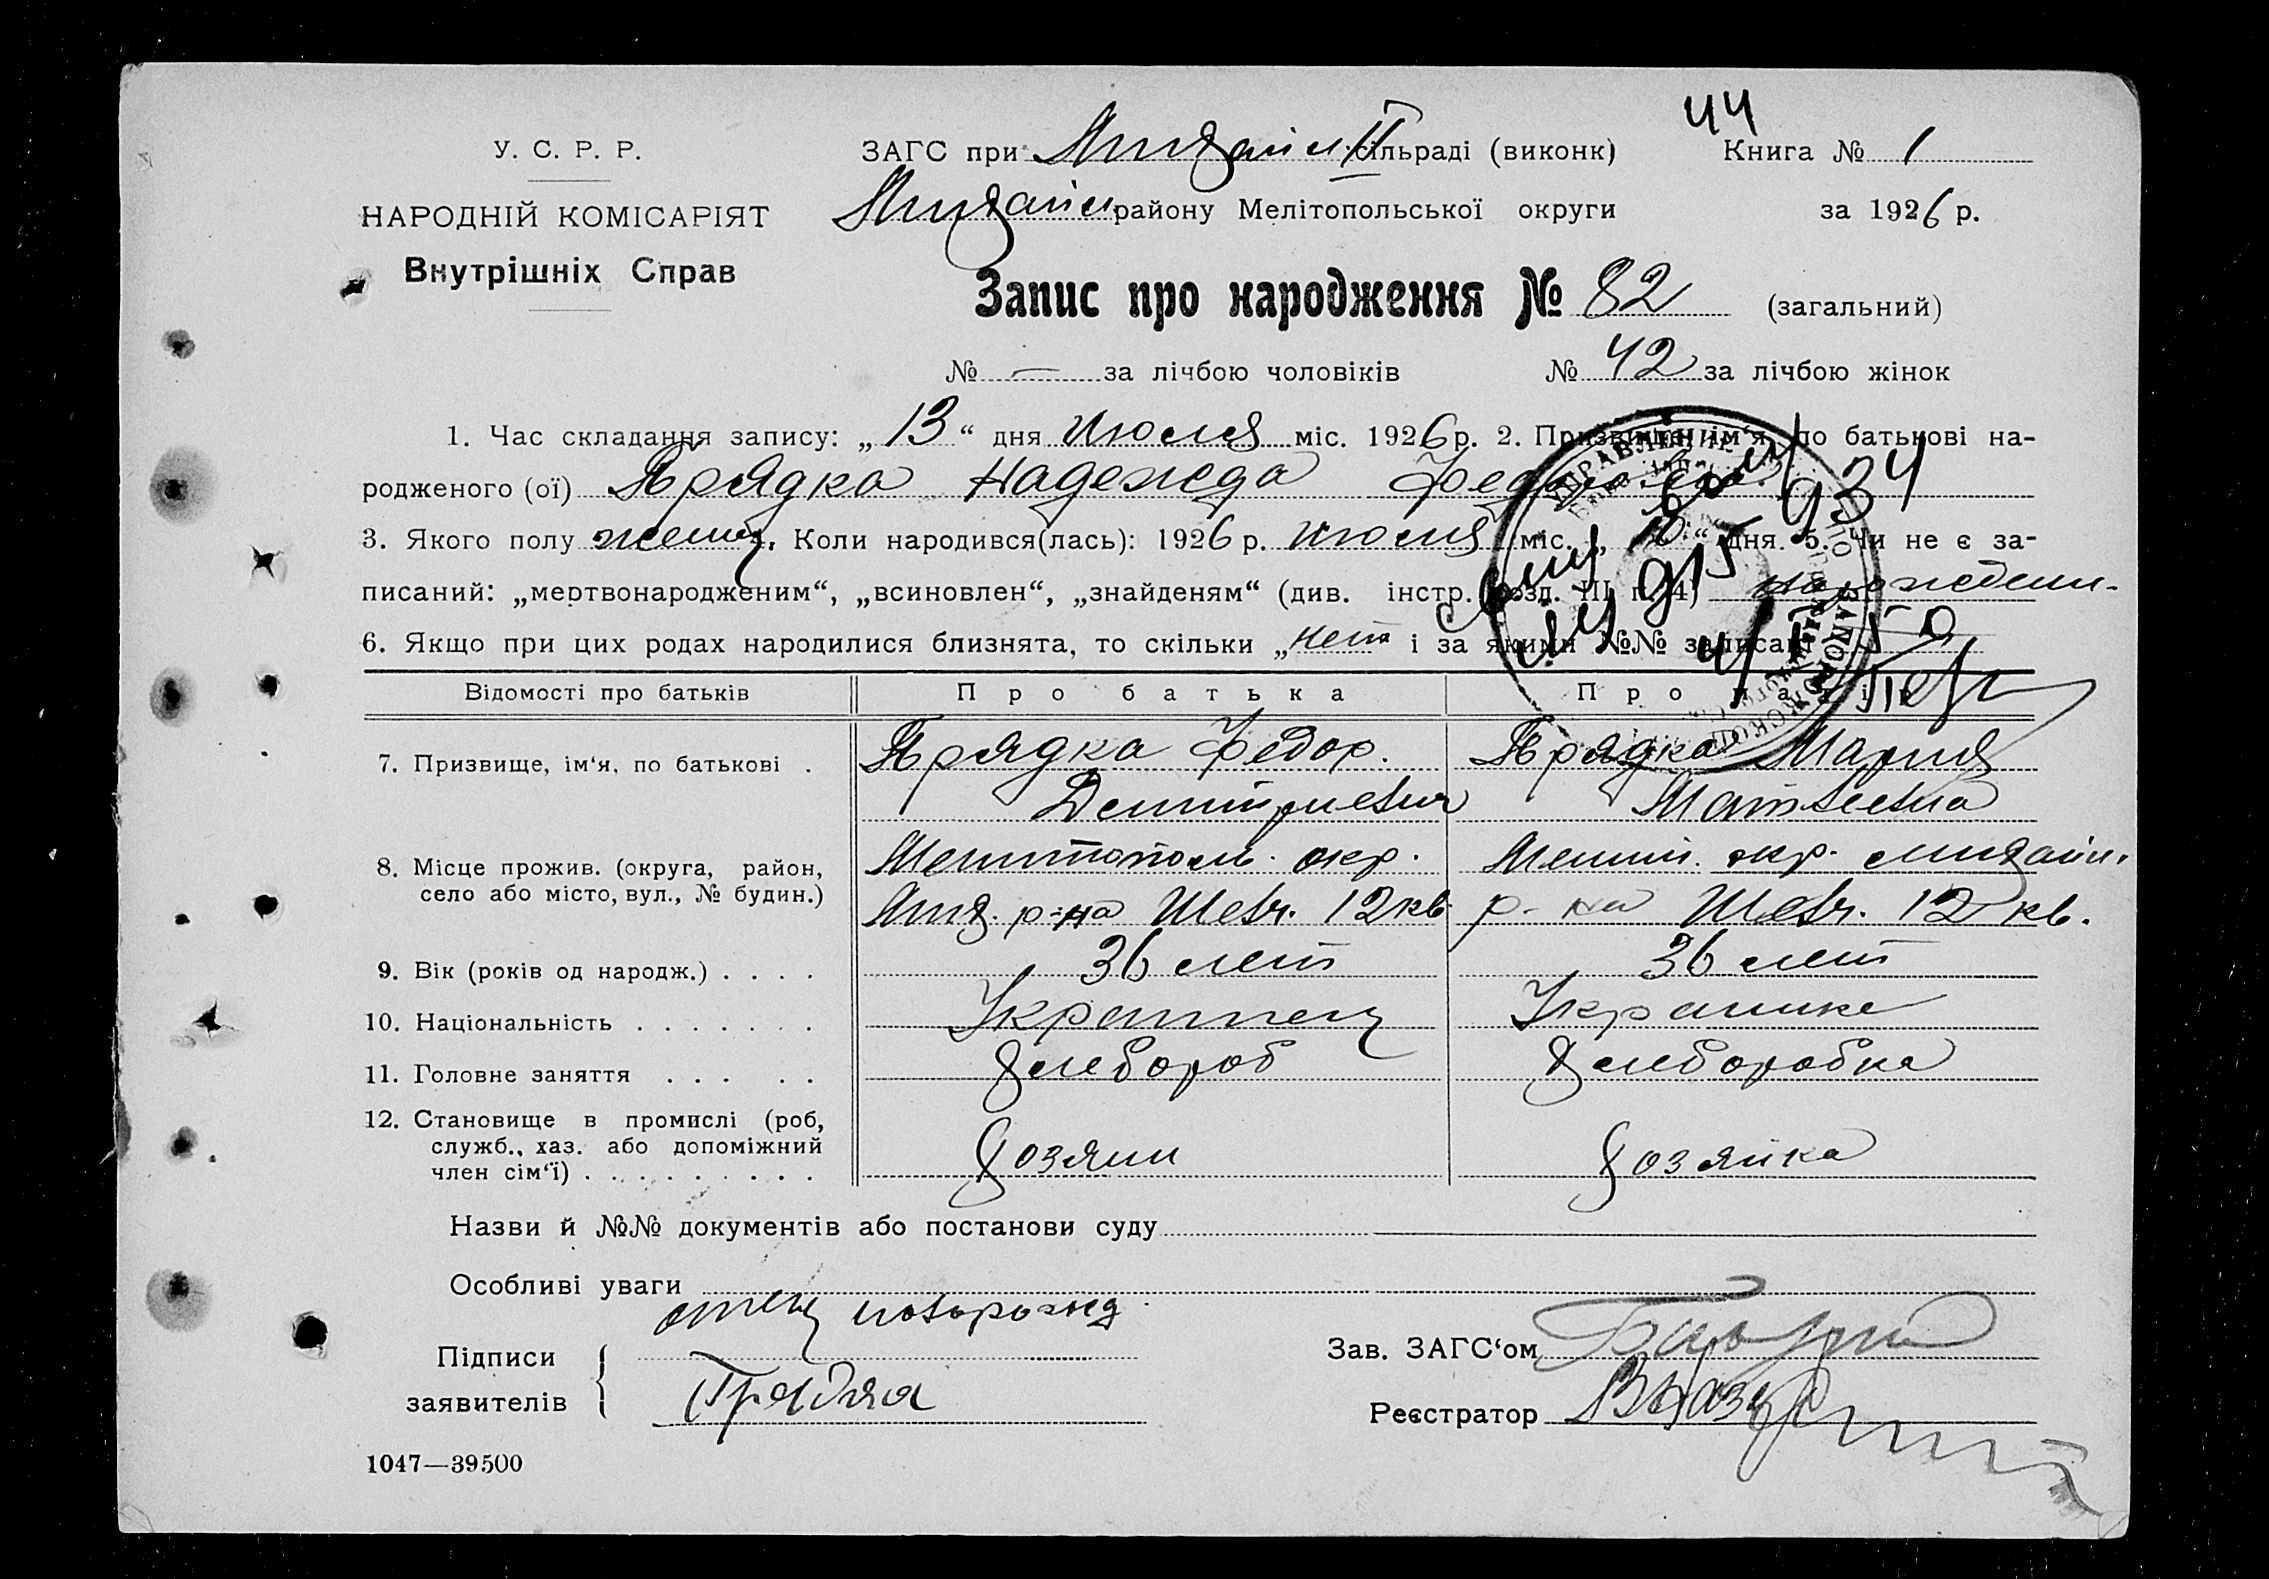 44
У. С. Р. Р.
ЗАГС при Михайл. II сільраді (виконк)
Книга № 1
НАРОДНІЙ КОМІСАРІЯТ
Михайл району Мелітопольської округи
за 1926 р.
Внутрішніх Справ
Запис про народження № 82 (загальний)
№ — за лічбою чоловіків № 42 за лічбою жінок
1. Час складання запису: „ 13 “ дня Июля міс. 1926 р. 2. Призвище, ім‘я, по батькові на-
родженого (ої) Прядка Надежда
3. Якого полу женц. Коли народився(лась): 1926 р. июля міс. „ 10 “ дня. 5. Чи не є за-
писаний: „мертвонародженим“, „всиновлен“, „знайденям“ (див. інстр. розд. III п. 4)
6. Якщо при цих родах народилися близнята, то скільки „ нет і за якими №№ записані
Відомості про батьків
Про батька
Про матір
7. Призвище, ім‘я, по батькові .
Прядка Федор.
Дмитриевич
Прядка Мария
Матвеевна
8. Місце прожив. (округа, район,
село або місто, вул., № будин.)
Мелитополь. окр.
Мих. р-на Шевч. 12 кв
Мелит. окр. михайл.
р-на Шевч. 12 кв.
9. Вік (років од народж.) . . . .
36 лет
36 лет
10. Національність . . . . . . .
Украинец
Украинка
11. Головне заняття . . . . .
Хлебороб
Хлеборобка
12. Становище в промислі (роб,
служб., хаз. або допоміжний
член сім‘ї) . . . . . . . . .
Хозяин
Хозяйка
Назви й №№ документів або постанови суду
Особливі уваги
отец новорожд.
Підписи
заявителів
Прядка
Зав. ЗАГС‘ом
Реєстратор
1047—39500